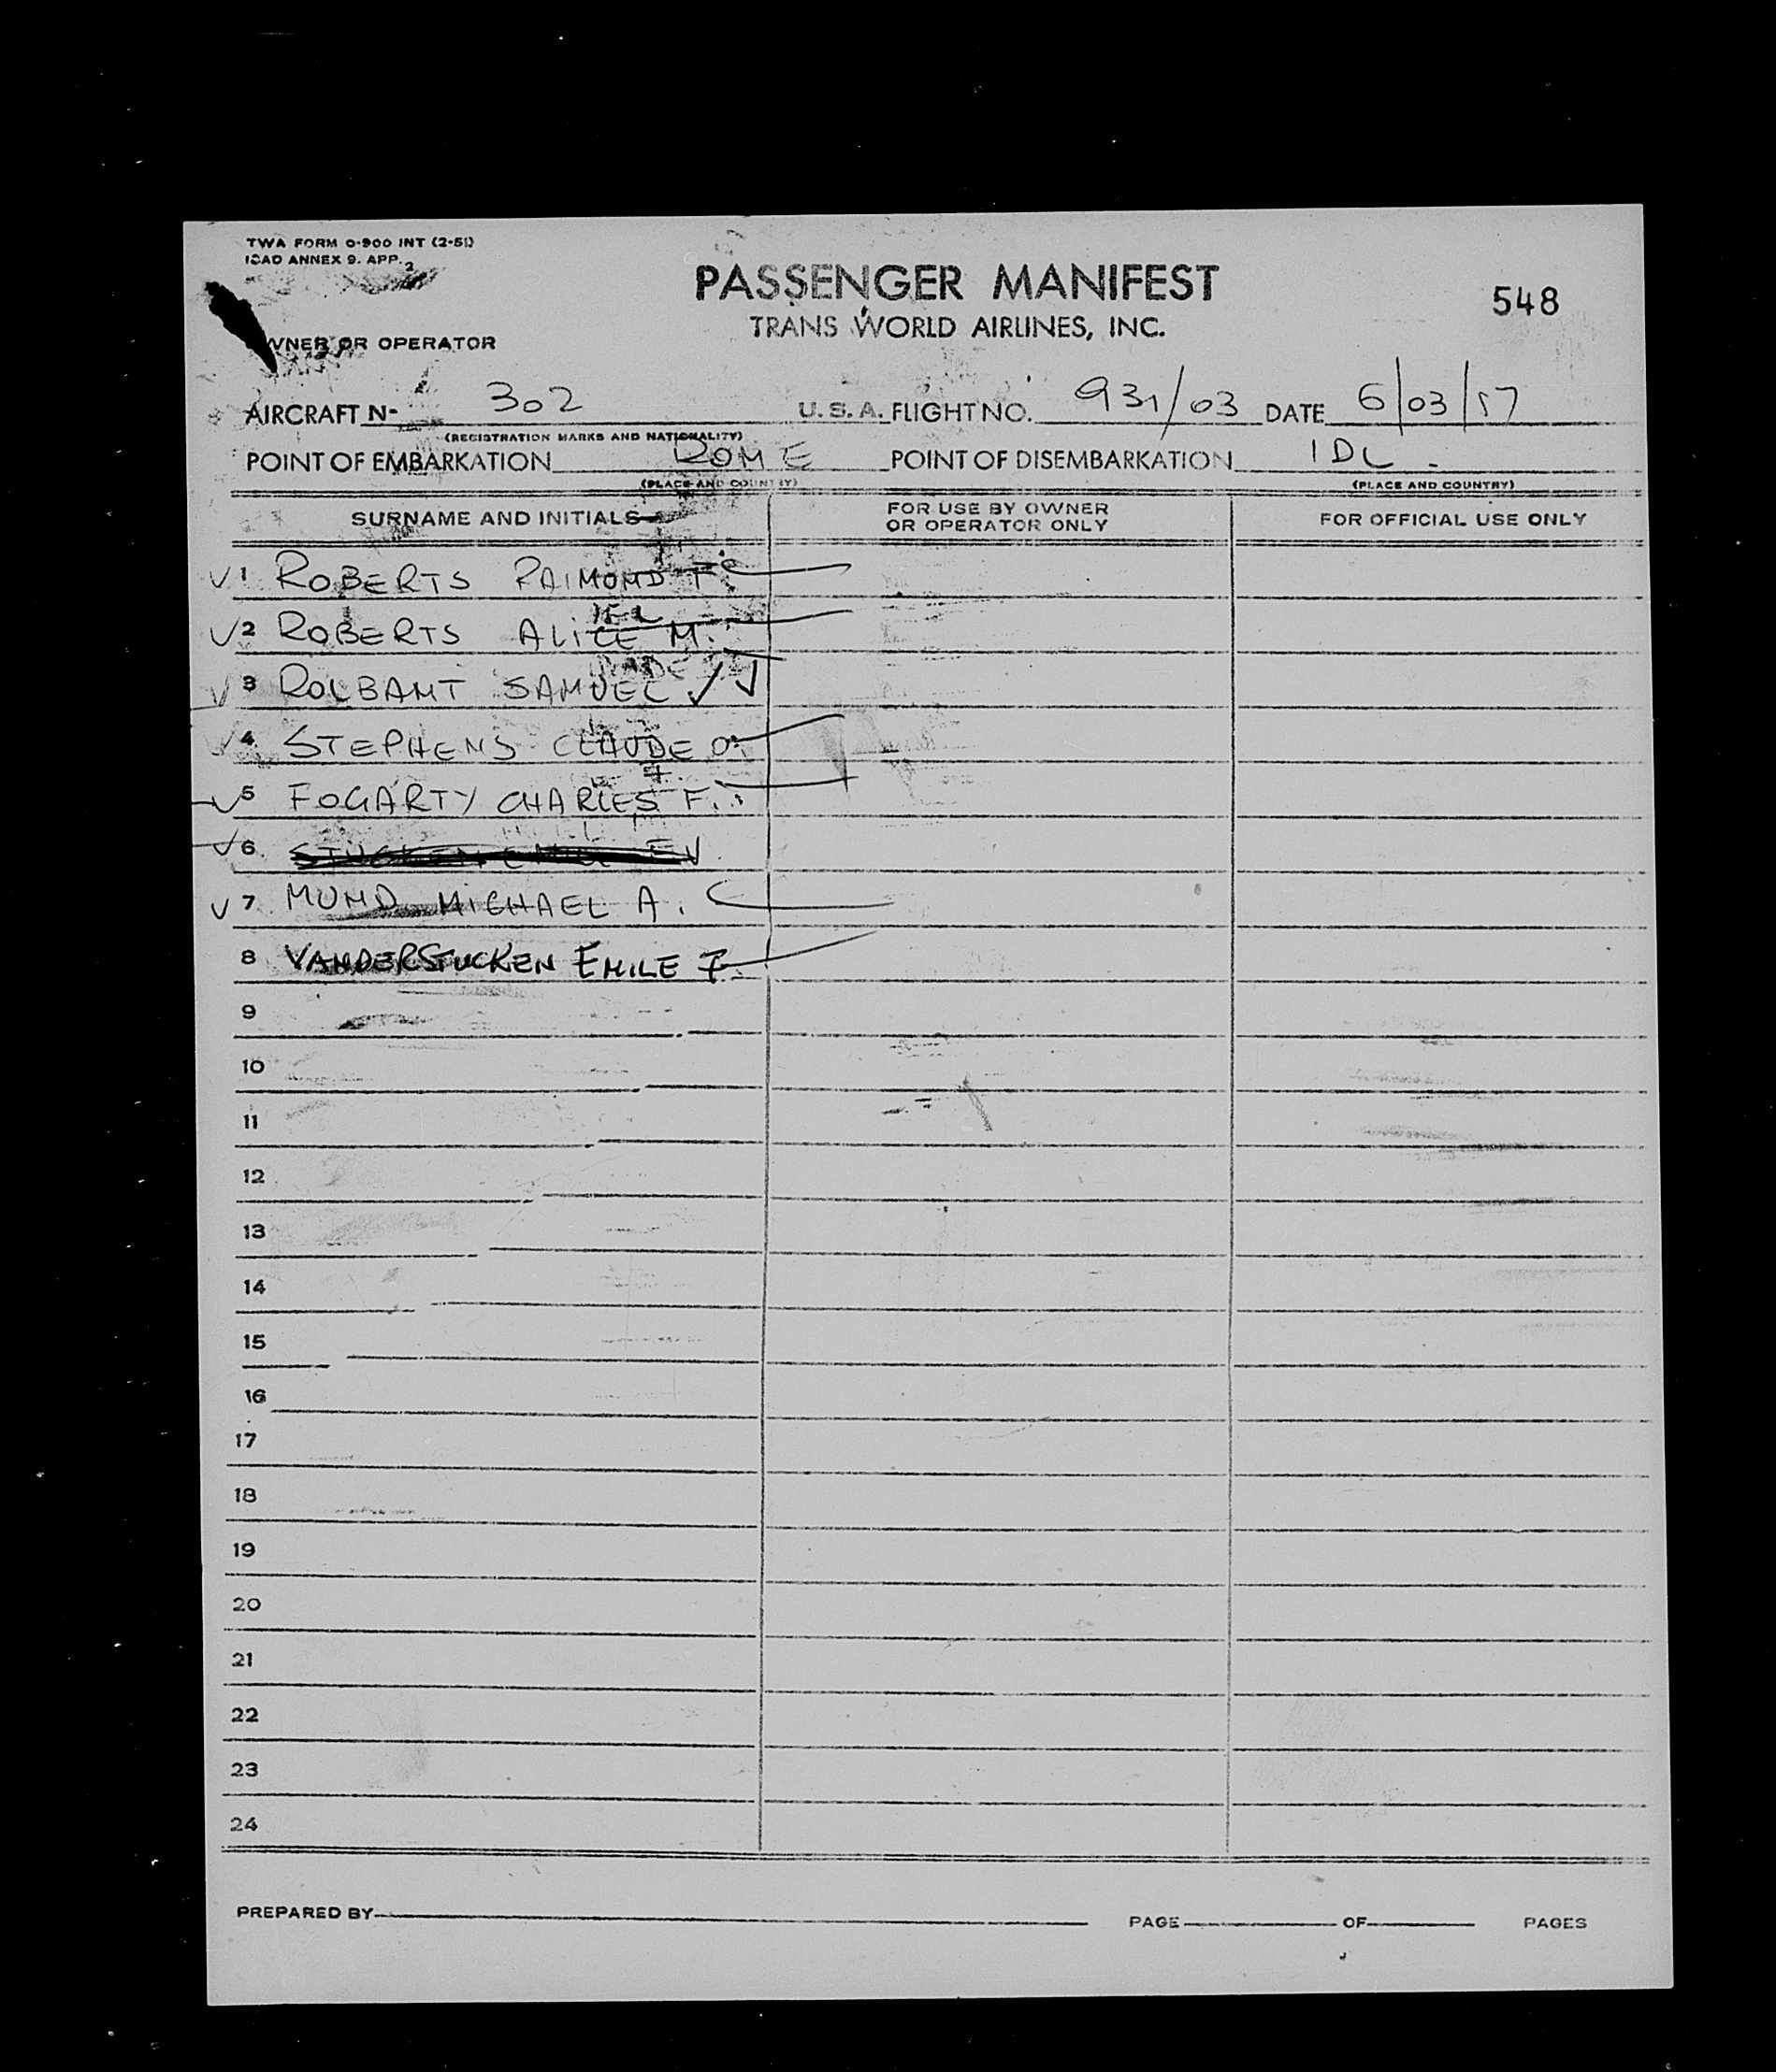 TWA FORM O-900 INT (2-51)
ICAO ANNEX 9. APP. 2
PASSENGER MANIFEST
548
TRANS WORLD AIRLINES, INC.
OWNER OR OPERATOR
AIRCRAFT N- 302 U. S. A. FLIGHT NO. 931/03 DATE 6/03/57
(REGISTRATION MARKS AND NATIONALITY)
POINT OF EMBARKATION ROME POINT OF DISEMBARKATION IDL -
(PLACE AND COUNTRY) (PLACE AND COUNTRY)
SURNAME AND INITIALS FOR USE BY OWNER OR OPERATOR ONLY FOR OFFICIAL USE ONLY
✓ 1 ROBERTS RAIMOND F.
✓ 2 ROBERTS ALICE M.
✓ 3 ROLBANT SAMUEL ✓ ✓
✓ 4 STEPHENS CLAUDE O.
✓ 5 FOGARTY CHARLES F.
✓ 6
✓ 7 MUND MICHAEL A.
8 VANDERSTUCKEN EMILE F.
9
10
11
12
13
14
15
16
17
18
19
20
21
22
23
24
PREPARED BY PAGE OF PAGES